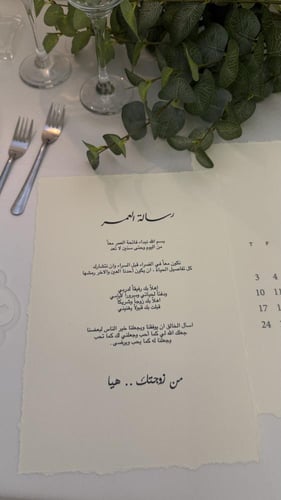 رسالة العمر
بسم الله نبداء فاتحة العمر معاً
من اليوم وحتى سنين لا تعد
نكون معاً في الضراء قبل السراء وان نتشارك
كل تفاصيل الحياة ، ان يكون أحدنا العين والآخر رمشها
إهلاً بك رفيقاً لدربي
ودفئاً لحياتي وسروراً لأنسي
اهلاً بك زوجاً وشريكاً
قبلت بك قبولاً يغنيني
اسال الخالق ان يوفقنا ويجعلنا خير الناس لبعضنا
جعلك الله لي كما احب وجعلني لك كما تحب
وجعلنا له كما يحب ويرضى .
من زوجتك .. هيا
T F
3 4
10 11
17
24